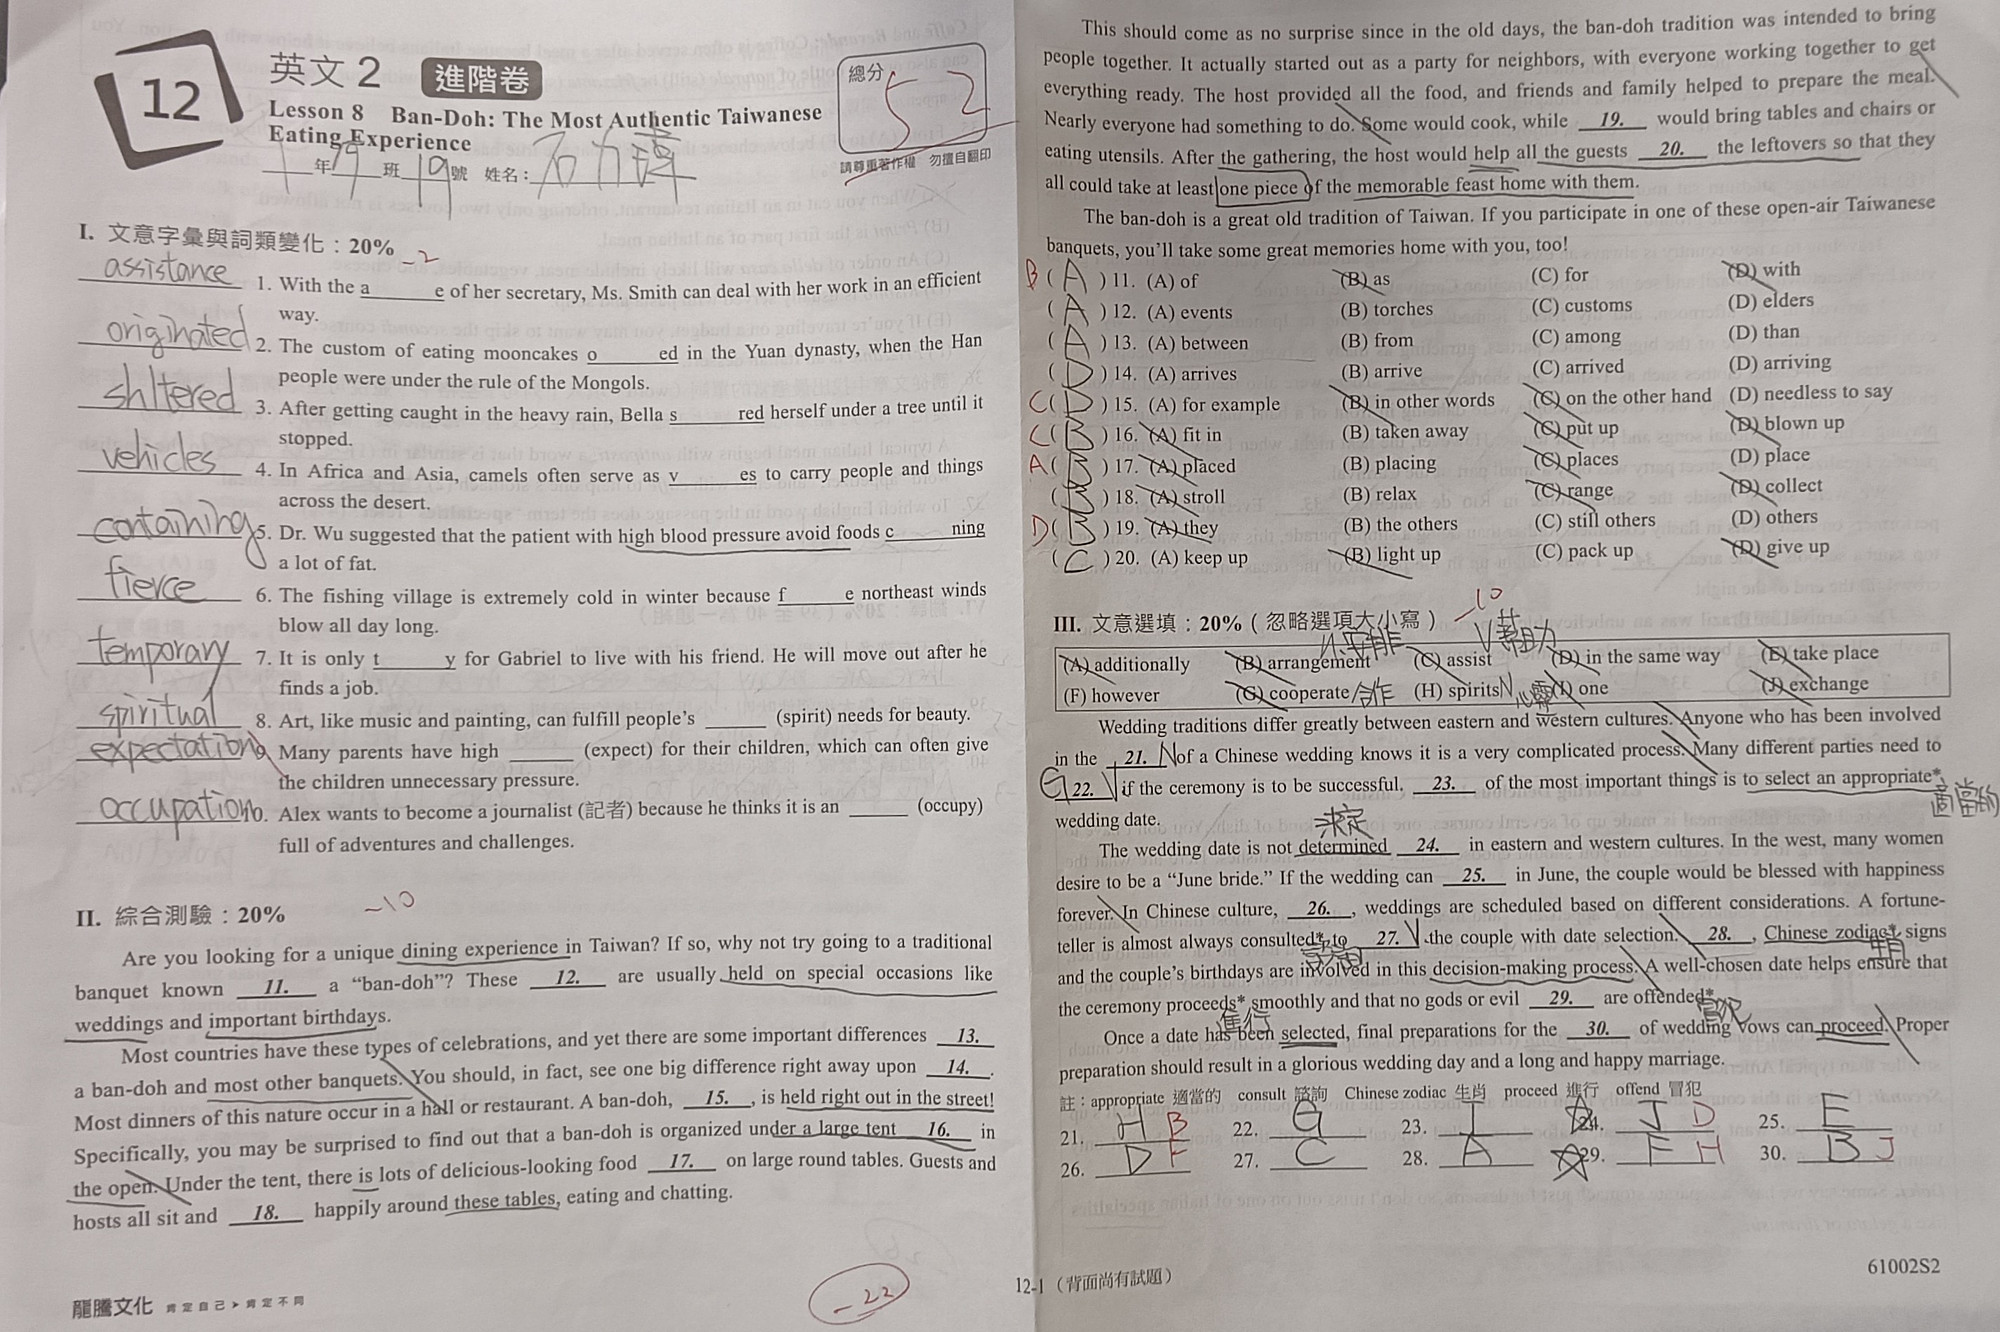 12
英文2 進階卷
Lesson 8 Ban-Doh: The Most Authentic Taiwanese
Eating Experience
總分 52
請尊重著作權 勿擅自翻印
年 19 班 19 號 姓名：
I. 文意字彙與詞類變化：20% -2
assistance 1. With the a______e of her secretary, Ms. Smith can deal with her work in an efficient
way.
originated 2. The custom of eating mooncakes o______ed in the Yuan dynasty, when the Han
people were under the rule of the Mongols.
shltered 3. After getting caught in the heavy rain, Bella s______red herself under a tree until it
stopped.
vehicles 4. In Africa and Asia, camels often serve as v______es to carry people and things
across the desert.
containing 5. Dr. Wu suggested that the patient with high blood pressure avoid foods c______ning
a lot of fat.
fierce 6. The fishing village is extremely cold in winter because f______e northeast winds
blow all day long.
temporary 7. It is only t______y for Gabriel to live with his friend. He will move out after he
finds a job.
spiritual 8. Art, like music and painting, can fulfill people's ______ (spirit) needs for beauty.
expectation 9. Many parents have high ______ (expect) for their children, which can often give
the children unnecessary pressure.
occupation 10. Alex wants to become a journalist (記者) because he thinks it is an ______ (occupy)
full of adventures and challenges.
II. 綜合測驗：20% -10
Are you looking for a unique dining experience in Taiwan? If so, why not try going to a traditional
banquet known 11. a “ban-doh”? These 12. are usually held on special occasions like
weddings and important birthdays.
Most countries have these types of celebrations, and yet there are some important differences 13.
a ban-doh and most other banquets. You should, in fact, see one big difference right away upon 14. .
Most dinners of this nature occur in a hall or restaurant. A ban-doh, 15. , is held right out in the street!
Specifically, you may be surprised to find out that a ban-doh is organized under a large tent 16. in
the open. Under the tent, there is lots of delicious-looking food 17. on large round tables. Guests and
hosts all sit and 18. happily around these tables, eating and chatting.
龍騰文化 肯定自己➤肯定不同
-22
This should come as no surprise since in the old days, the ban-doh tradition was intended to bring
people together. It actually started out as a party for neighbors, with everyone working together to get
everything ready. The host provided all the food, and friends and family helped to prepare the meal.
Nearly everyone had something to do. Some would cook, while 19. would bring tables and chairs or
eating utensils. After the gathering, the host would help all the guests 20. the leftovers so that they
all could take at least one piece of the memorable feast home with them.
The ban-doh is a great old tradition of Taiwan. If you participate in one of these open-air Taiwanese
banquets, you'll take some great memories home with you, too!
B ( A ) 11. (A) of (B) as (C) for (D) with
( A ) 12. (A) events (B) torches (C) customs (D) elders
( A ) 13. (A) between (B) from (C) among (D) than
( D ) 14. (A) arrives (B) arrive (C) arrived (D) arriving
C ( D ) 15. (A) for example (B) in other words (C) on the other hand (D) needless to say
C ( B ) 16. (A) fit in (B) taken away (C) put up (D) blown up
A ( B ) 17. (A) placed (B) placing (C) places (D) place
( B ) 18. (A) stroll (B) relax (C) range (D) collect
D ( B ) 19. (A) they (B) the others (C) still others (D) others
( C ) 20. (A) keep up (B) light up (C) pack up (D) give up
III. 文意選填：20%（忽略選項大小寫） -10
N安排 V幫助
(A) additionally (B) arrangement (C) assist (D) in the same way (E) take place
(F) however (G) cooperate 合作 (H) spirits N 心靈 (I) one (J) exchange
Wedding traditions differ greatly between eastern and western cultures. Anyone who has been involved
in the 21. N of a Chinese wedding knows it is a very complicated process. Many different parties need to
G 22. V if the ceremony is to be successful. 23. of the most important things is to select an appropriate*
適當的
wedding date. 決定
The wedding date is not determined 24. in eastern and western cultures. In the west, many women
desire to be a “June bride.” If the wedding can 25. in June, the couple would be blessed with happiness
forever. In Chinese culture, 26. , weddings are scheduled based on different considerations. A fortune-
teller is almost always consulted* to 27. V the couple with date selection. 28. , Chinese zodiac* signs
and the couple's birthdays are involved in this decision-making process. A well-chosen date helps ensure that
the ceremony proceeds* smoothly and that no gods or evil 29. are offended*.
Once a date has been selected, final preparations for the 30. of wedding vows can proceed. Proper
preparation should result in a glorious wedding day and a long and happy marriage.
註：appropriate 適當的 consult 諮詢 Chinese zodiac 生肖 proceed 進行 offend 冒犯
21. H B 22. G 23. I 24. J D 25. E
26. D F 27. C 28. A 29. F H 30. B J
12-1（背面尚有試題）
61002S2